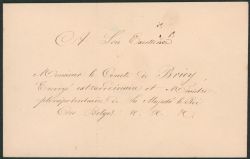 A Son Excellence
Monsieur le Comte de Briey
Envoyé extraordinaire et Ministre
plénipotentiaire de Sa Majesté le Roi
Des Belges &. &. &.